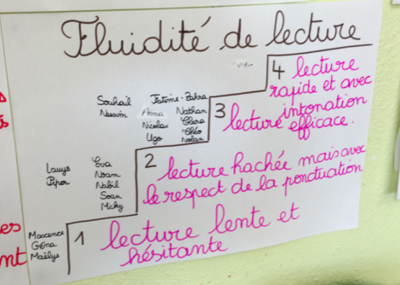 Fluidité de lecture
4 lecture
rapide et avec
intonation
3 lecture efficace.
Souhaïl
Nessim
Fatima-Zahra
Anna Nathan
Nicolas Clara
Ugo Chléo
2 lecture hachée mais avec
le respect de la ponctuation
Eva
Noam
Nabil
Soan
Micky
Piper
1 lecture lente et
hésitante
Maxence
Géna
Maëlys
es
nt